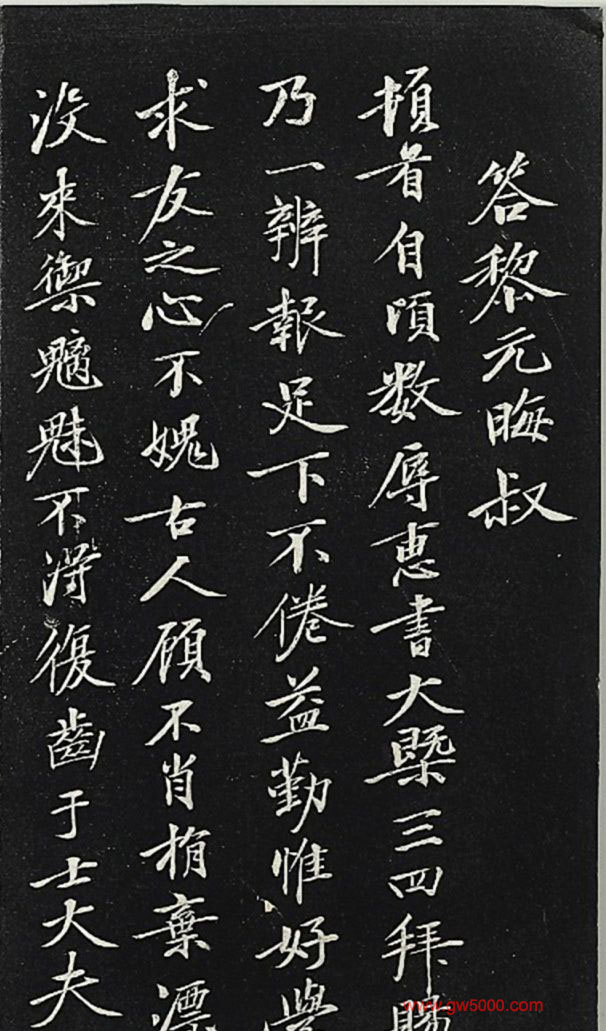 答黎元晦叔
頓首自頃数辱惠書大槩三四拜賜
乃一辨報足下不倦益勤惟好學
求友之心不媿古人顧不肖捐棄漂
没來禦魑魅不得復齒于士大夫
www.gw5000.com